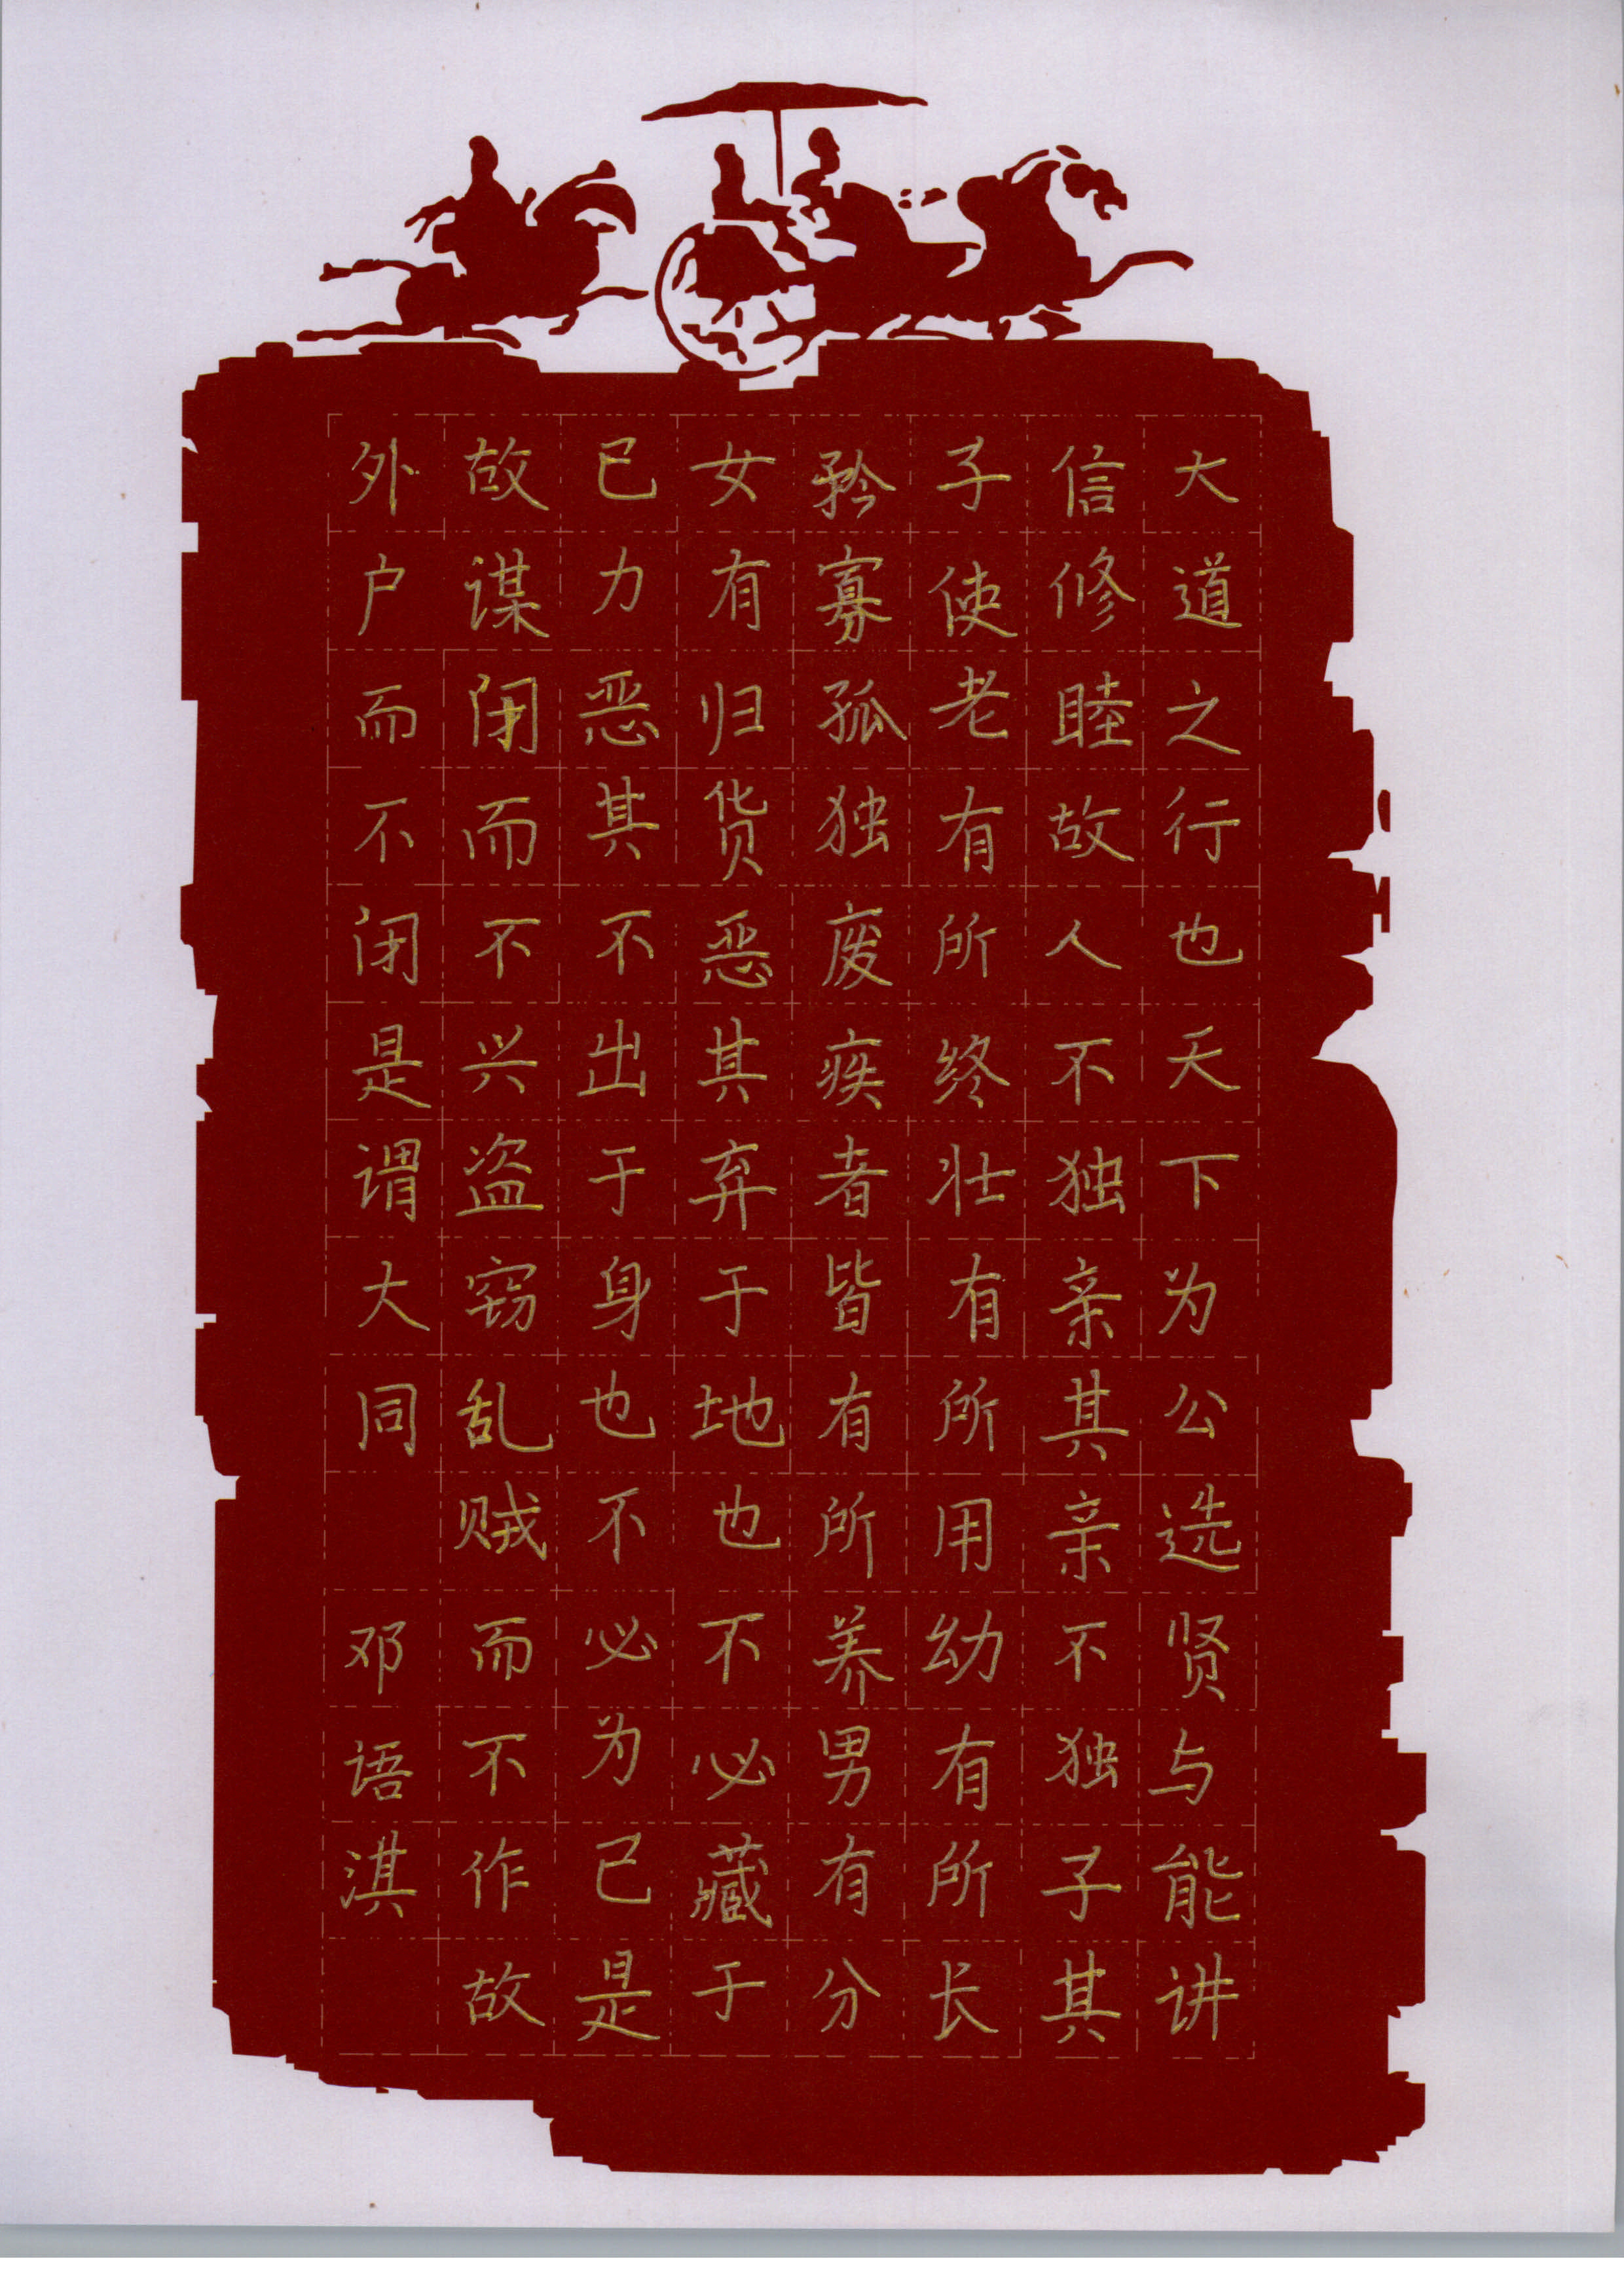 大道之行也天下为公选贤与能讲
信修睦故人不独亲其亲不独子其
子使老有所终壮有所用幼有所长
矜寡孤独废疾者皆有所养男有分
女有归货恶其弃于地也不必藏于
已力恶其不出于身也不必为已是
故谋闭而不兴盗窃乱贼而不作故
外户而不闭是谓大同 邓语淇